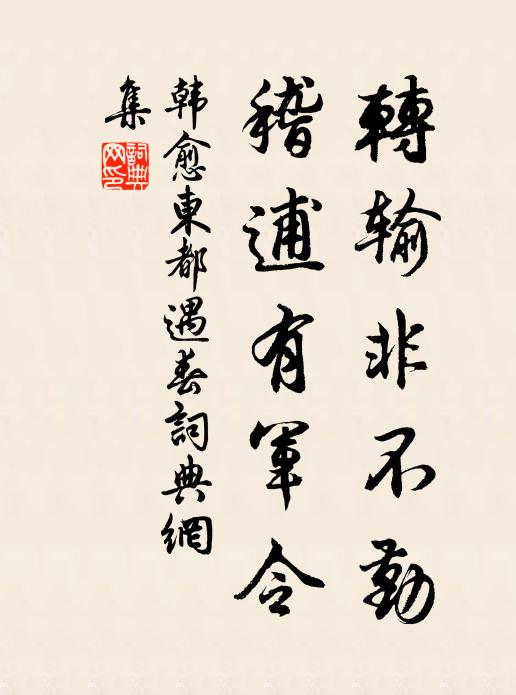 轉輸非不勤
稽逋有軍令
韩愈東都遇春詞典網
集
詞典
网印